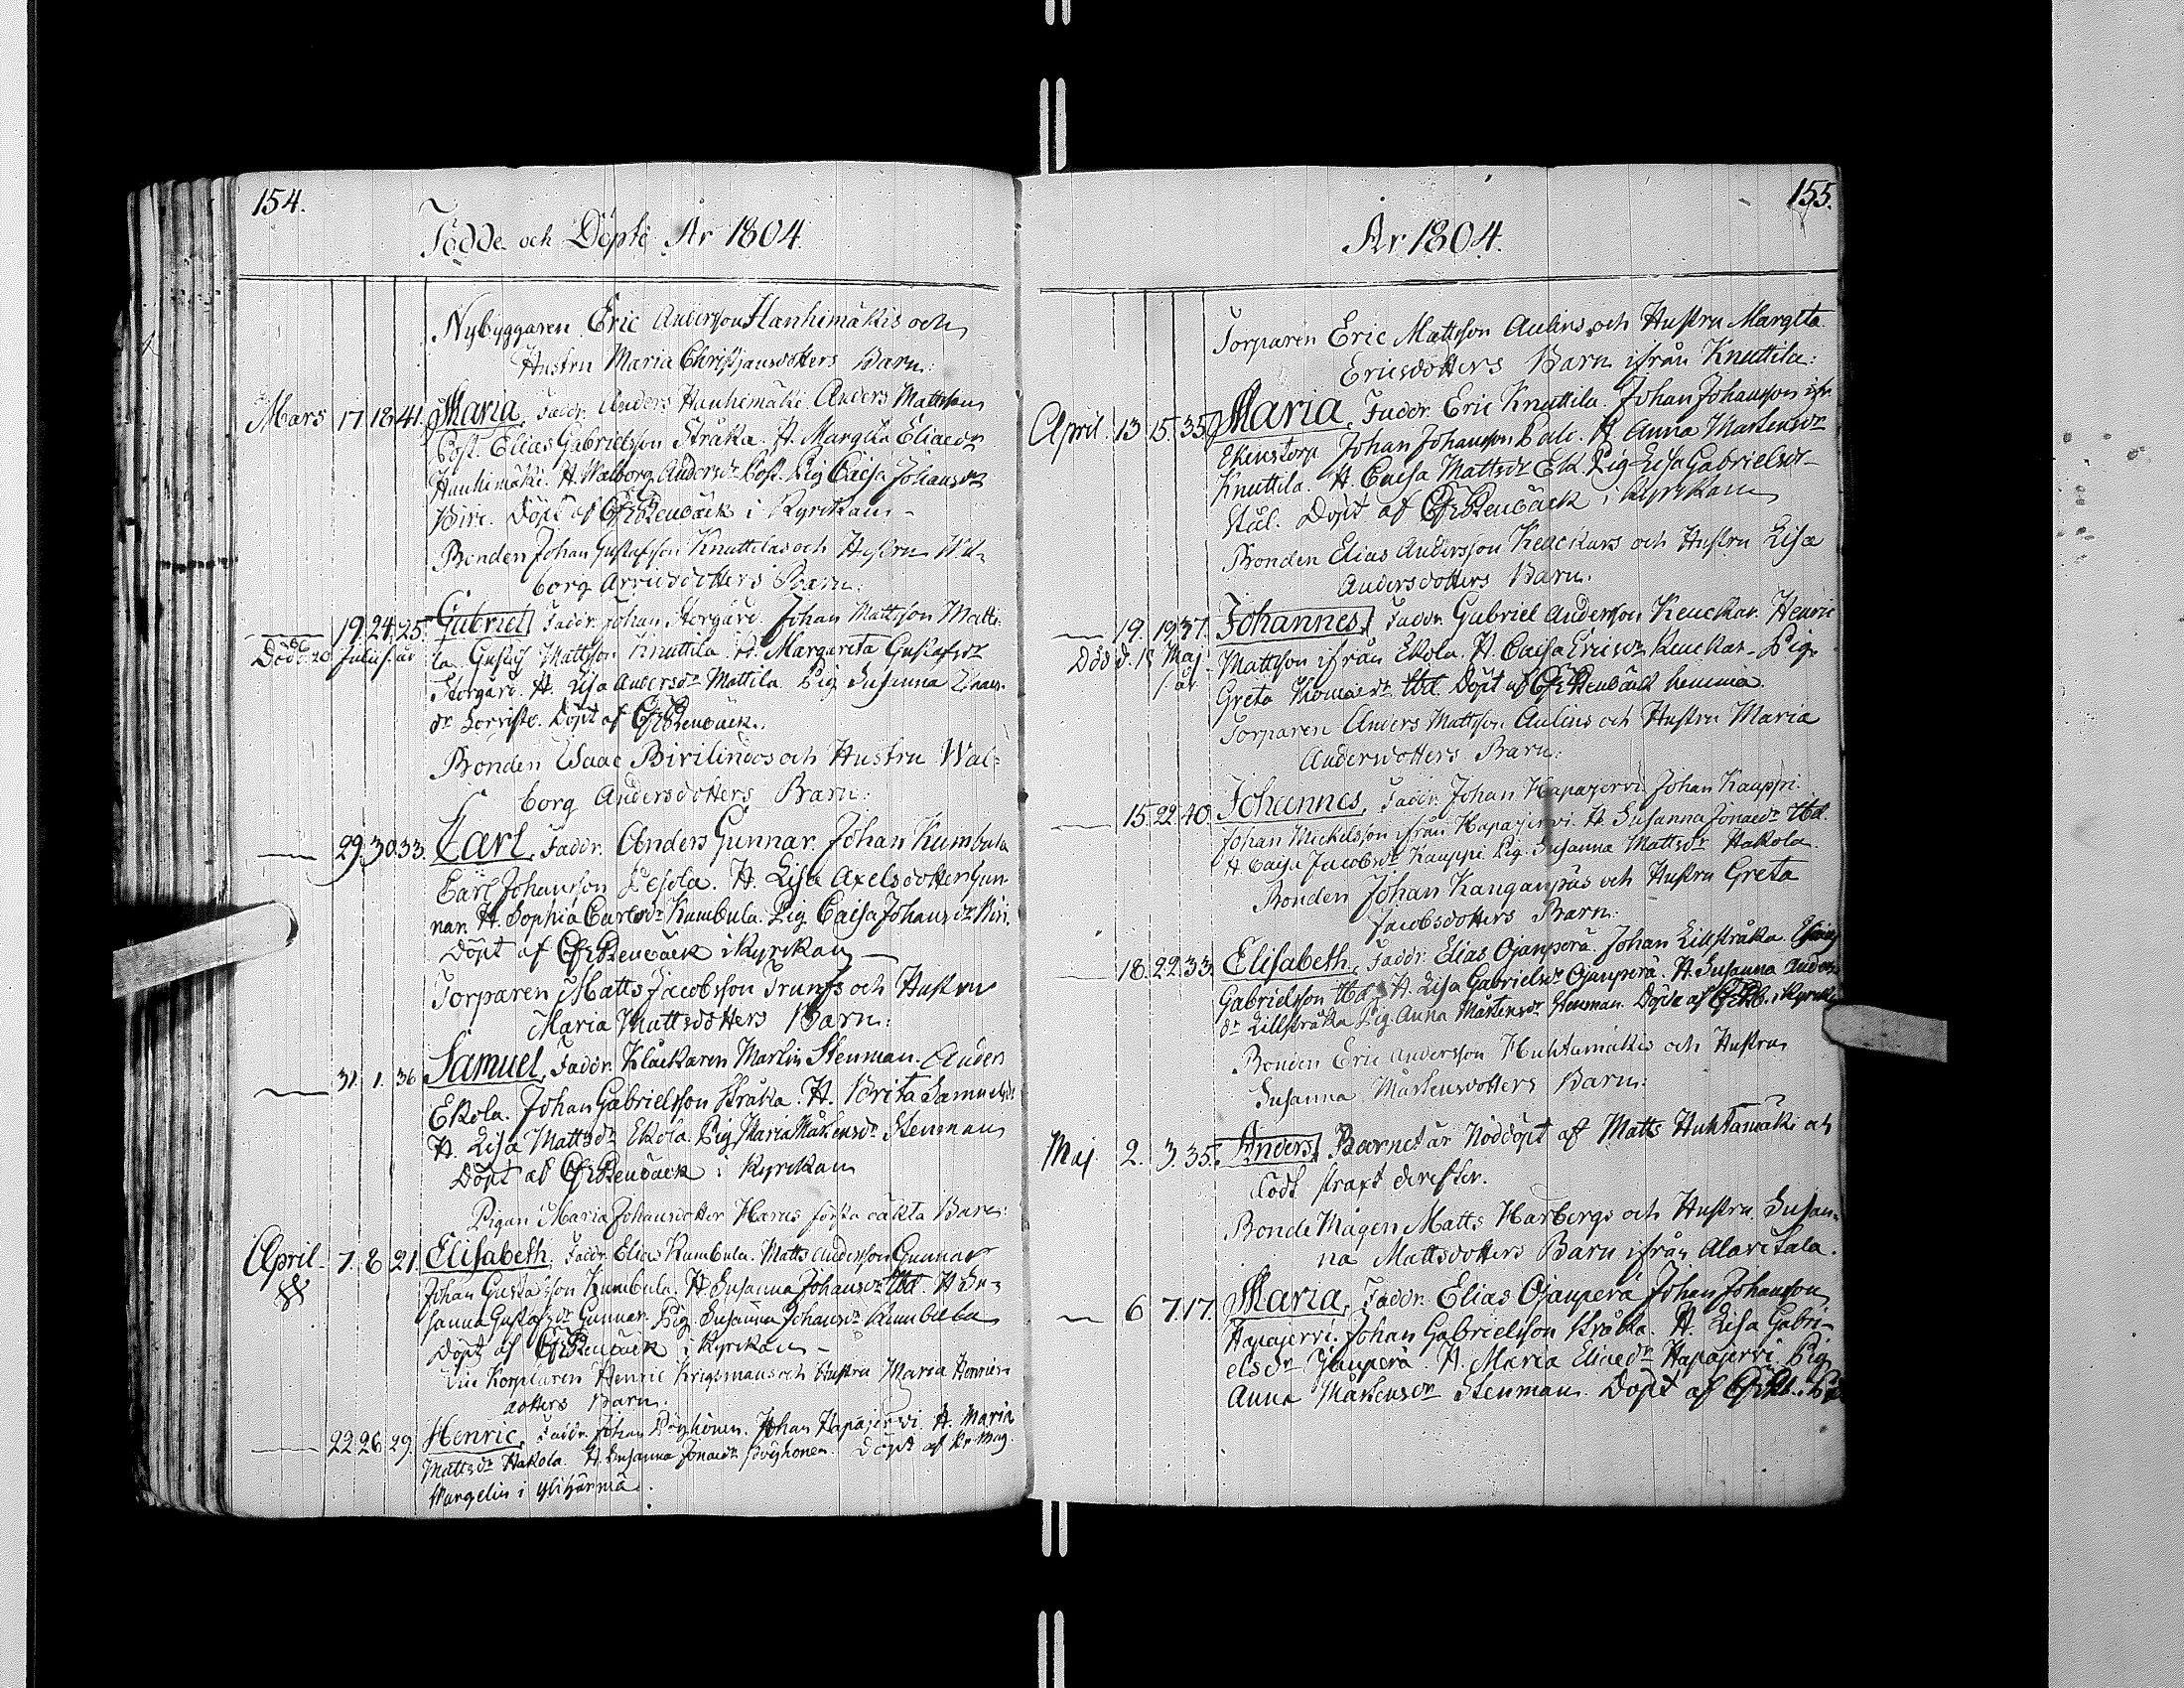 154.
Födde och Döpte År 1804.
Nybyggaren Eric Andersson Hanhimäkis och
Hustru Maria Christjansdotters Barn:
Mars 17 18 41. Maria, Faddr. Anders Hanhimäki. Anders Mattsson
Post. Elias Gabrielsson Stråka. H. Margeta Eliaedr
Hanhimäki. H. Walborg Andersdr Post. Pig Caisa Johansdr
Biri. Döpt af Stenbäck i Kyrckan –
Bonden Johan Gustafsson Knuttilas och Hustru Wal-
borg Arvidsdotters Barn:
19. 24. 25. Gabriel, Faddr. Johan Storgård. Johan Mattsson Matti-
Död d. 20 Julii 1. år la. Gustaf Mattsson Knuttila. H. Margareta Gustafsdr
Storgård. H. Lisa Andersdr Mattila. Pig Susanna
dr Döpt af Stenbäck.
Bonden Isaac Birilindos och Hustru Wal-
borg Andersdotters Barn:
29. 30. 33. Carl, Faddr. Anders Gunnar. Johan Kumbula
Carl Johansson Pesola. H. Lisa Axelsdotter Gun-
nar. H. Sophia Carlsdr Kumbula. Pig Caisa Johansdr Biri.
Döpt af Stenbäck i Kyrckan
Torparen Matts Jacobsson Trumfs och Hustru
Maria Mattsdotters Barn:
31. 1. 36 Samuel, Faddr. Klåckaren Martin Stenman. Anders
Ekola. Johan Gabrielsson Stråka. H. Brita Samuelsdr
H. Lisa Mattsdr Ekola. Pig Maria Mårtensdr Stenman
Döpt af Stenbäck i Kyrckan
Pigan Maria Johansdotter Harus första oäkta Barn:
April 7. 8. 21. Elisabeth, Faddr. Elias Kumbula. Matts Andersson Gunnar
Johan Gustafsson Kumbula. H. Susanna Johansdr Ibd. H. Su-
sanna Gustafsdr Gunnar. Pig. Susanna Johansdr Kumbula
Döpt af Stenbäck i Kyrckan –
Vice Korpralen Henric Krigsmans och Hustru Maria Henrics-
dotters Barn:
22. 26. 29. Henric, Faddr. Johan Pöyhönen. Johan Hapajervi. H. Maria
Mattsdr Hakola. H. Susanna Jonaedr Pöyhönen. Döpt af Hr Mag.
Wargelin i Ylihärmä.
155.
År 1804.
Torparen Eric Mattsson Aulins och Hustru Margeta
Ericsdotters Barn ifrån Knuttila:
April. 13. 15. 35. Maria, Faddr. Eric Knuttila. Johan Johansson ifr.
Ekenstorp Johan Johansson H. Anna Mårtensdr
Knuttila. H. Caisa Mattsdr Ek. Pig Lisa Gabrielsdr
Stål. Döpt af Stenbäck i Kyrckan
Bonden Elias Andersson Keuckars och Hustru Lisa
Andersdotters Barn.
19. 19. 37. Johannes, Faddr. Gabriel Andersson Keuckar. Henric
Död d. 18 Maj Mattsson ifrån Ekola. H. Caisa Ericsdr Keuckar. Pig.
1. år Greta Thomaedr Ibd. Döpt af Stenbäck hemma.
Torparen Anders Mattsson Aulins och Hustru Maria
Andersdotters Barn:
15. 22. 40. Johannes, Faddr. Johan Hapajervi. Johan Kauppi.
Johan Mickelsson ifrån Hapajervi. H. Susanna Jonaedr Ibd.
H. Caisa Jacobsdr Kauppi. Pig. Susanna Mattsdr Hakola.
Bonden Johan Kanganpäs och Hustru Greta
Jacobsdotters Barn:
18. 22. 33. Elisabeth, Faddr. Elias Ojanperä. Johan Lillstråka. Elias
Gabrielsson Ibd. H. Lisa Gabrielsdr Ojanperä. H. Susanna Anders-
dr Lillstråka. Pig. Anna Mårtensdr Stenman. Döpt af i Kyrck
Bonden Eric Andersson Huhtamäkis och Hustru
Susanna Mårtensdotters Barn:
Maj. 2. 3. 35. Anders, Barnet är Nöddöpt af Matts Huhtamäki och
dödt straxt derefter.
Bonde Mågen Matts Harbergs och Hustru Susan-
na Mattsdotters Barn ifrån Alavitala.
6 7. 17. Maria, Faddr. Elias Ojanperä Johan Johansson
Hapajervi. Johan Gabrielsson Stråka. H. Lisa Gabri-
elsdr Ojanperä. H. Maria Eliaedr Hapajervi. Pig
Anna Mårtensdr Stenman. Döpt af